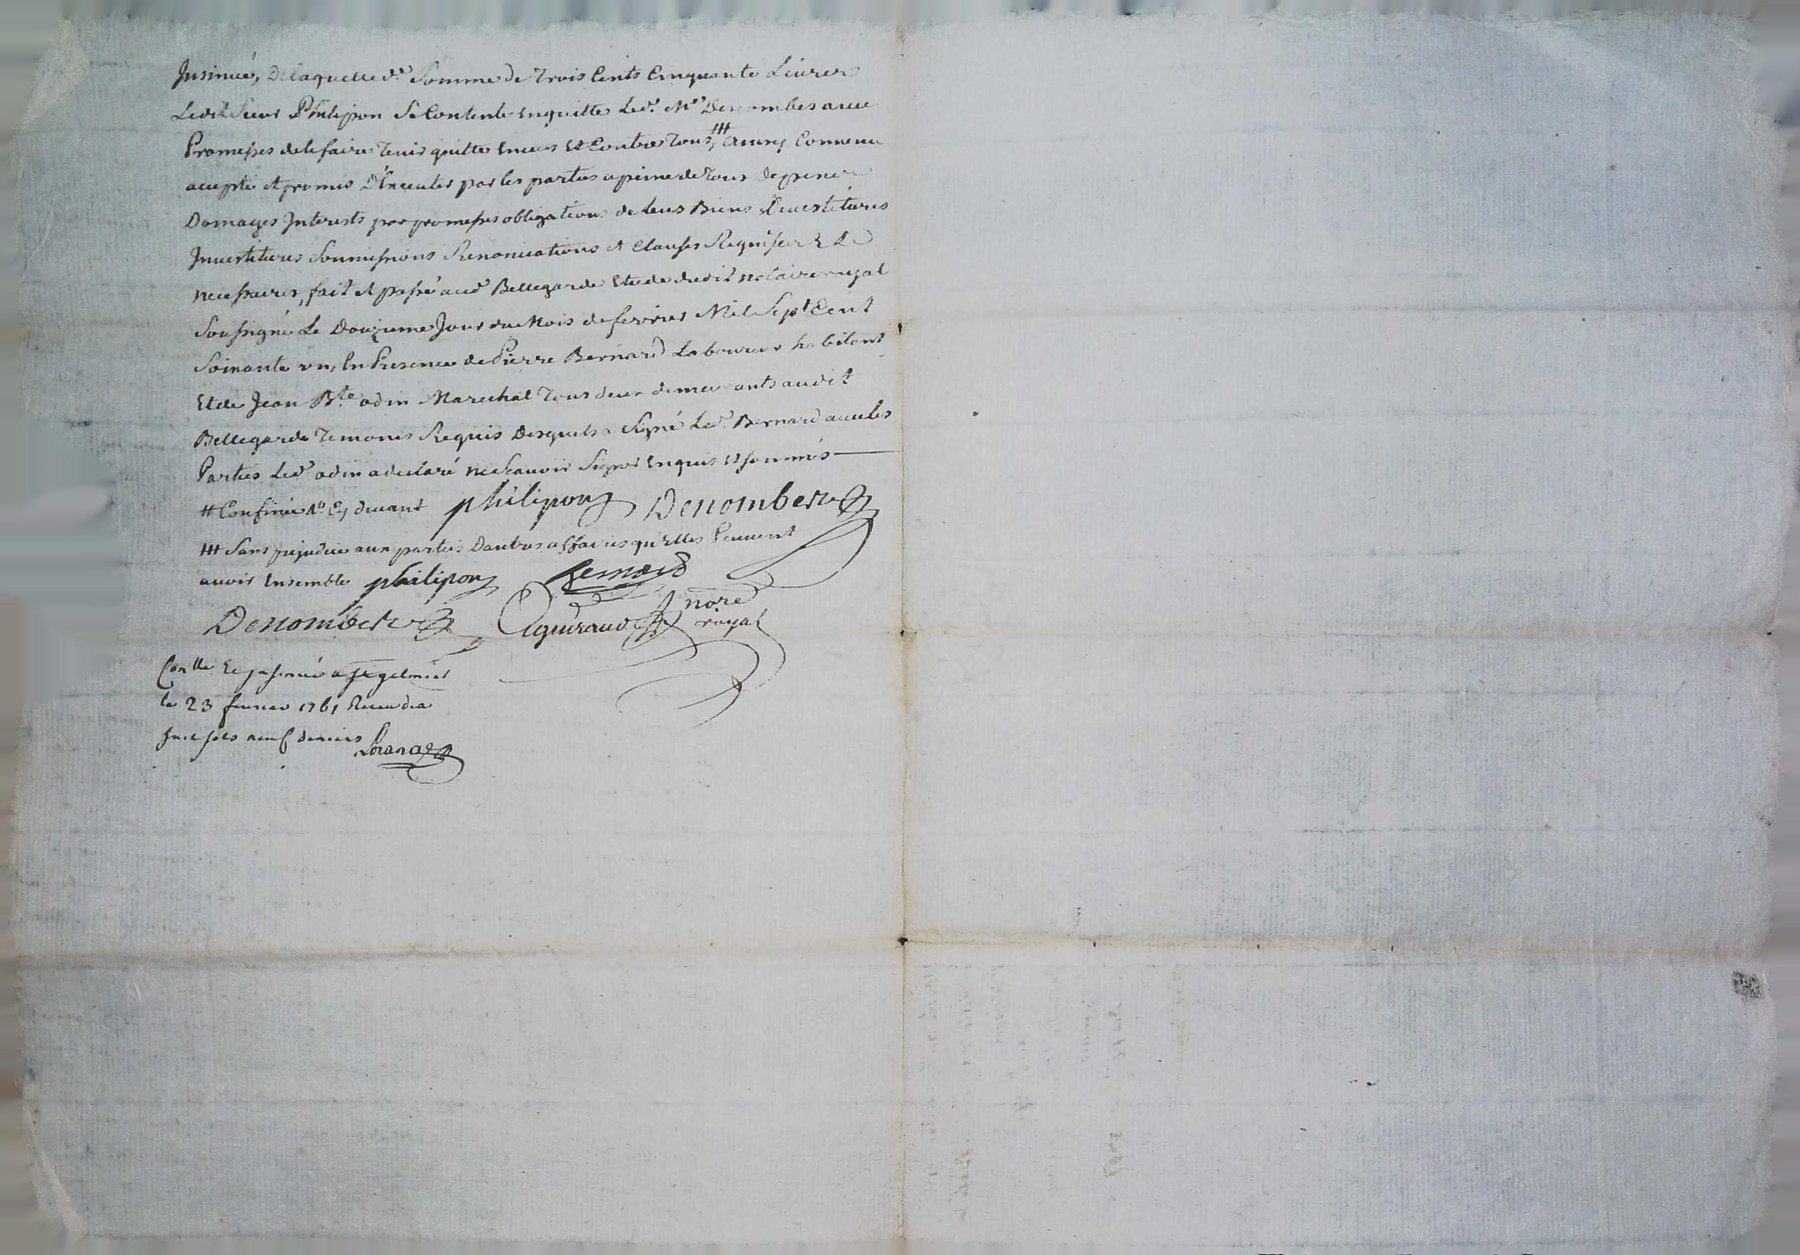 Insinué, De laquelle d.e Somme de Trois Cents Cinquante Livres
Ledit Sieur Philipon Se Contente Enquitte Led.t M.e Denombes avec
Promesses de le faire Tenir quitte Envers Et Contre Tous ⧻ Convenu
accepté et promis D'Executer par les parties a peine de Tous Depens
Domages Interests par promesses obligations de leurs Biens Devestitures
Investitures Soumissions Renonciations et Clauses Requises & 
necessaires, fait et passé aud.t Bellegarde Etude dudit notaire royal
Soussigné Le Douzieme Jour du Mois de fevrier Mil Sept Cent
Soixante un, En Presence de Pierre Bernard Laboureur habitant
Et de Jean B.te odin Marechal Tous deux demeurants audit
Bellegarde Temoins Requis Desquels a Signé Led.t Bernard avec les
Parties Led.t odin a declaré ne Scavoir Signer Enquis et sommés
devant philipon Denombes
⧻ Sans prejudice aux parties Dautres affaires qu'Elles Peuvent
avoir Ensemble philipon Bernard
Denombes Aguiraud no.re
royal
Con.lle Et Insinué a St galmier
le 23 fevrier 1761 Receu
sols neuf deniers